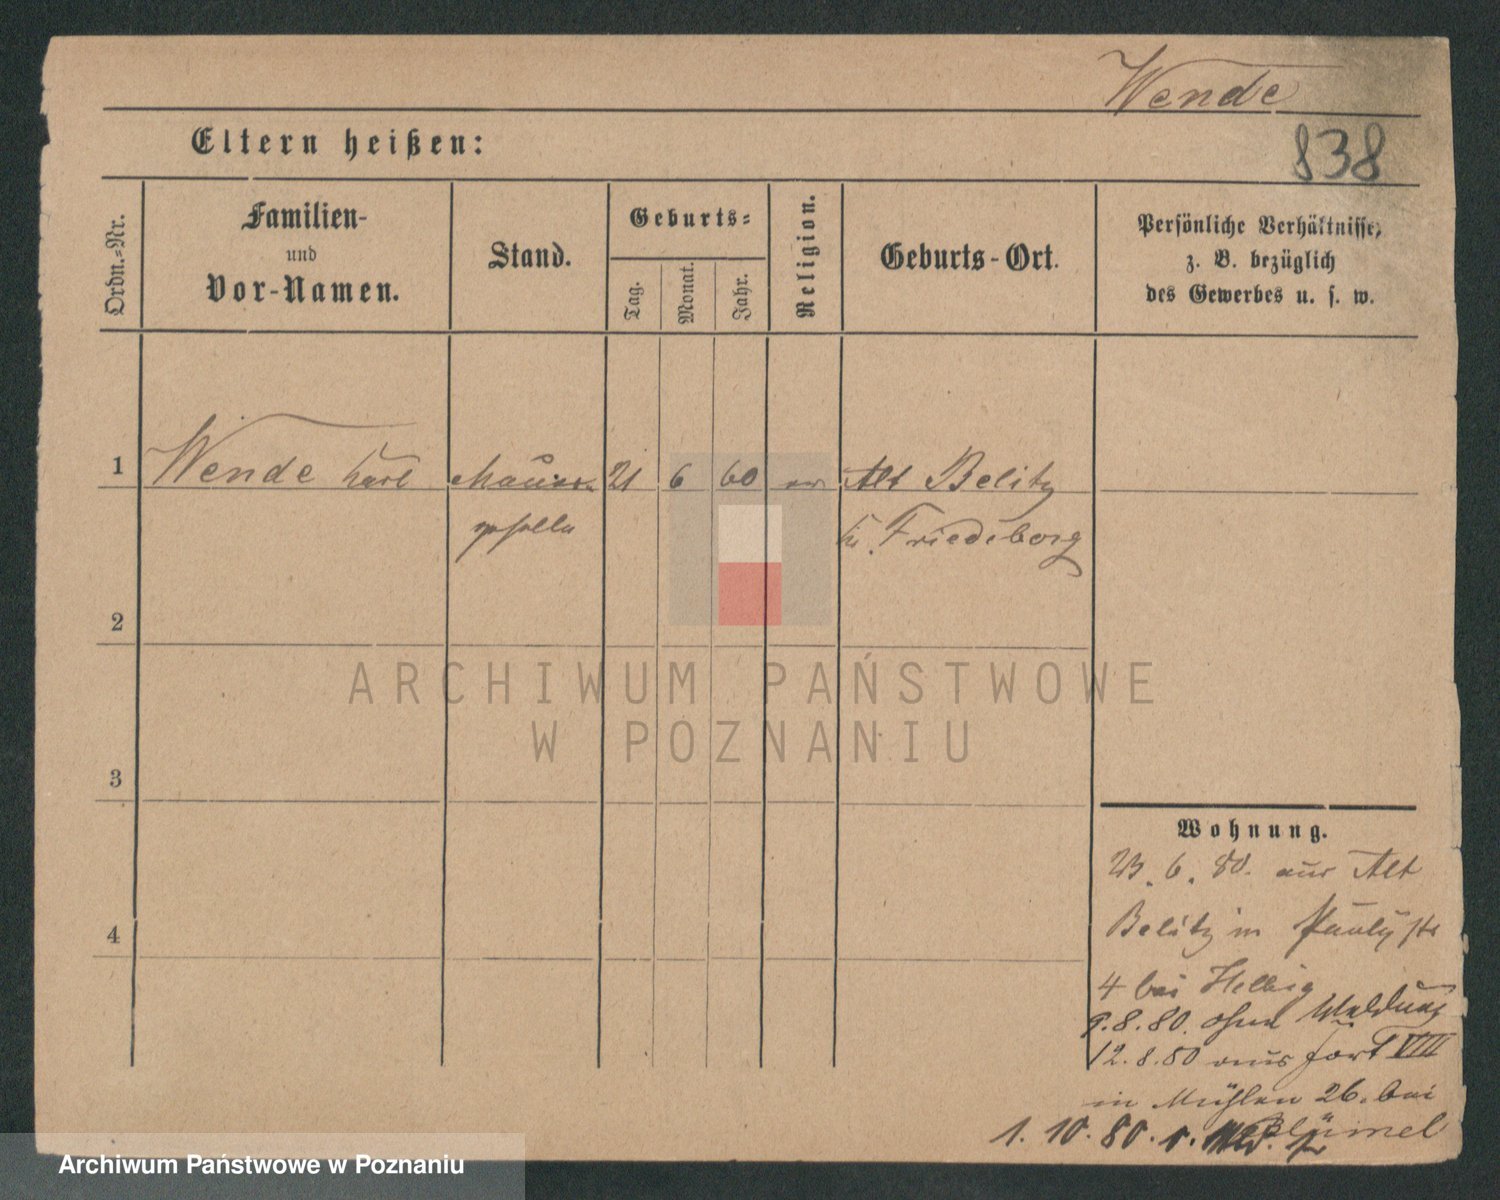 Wende
838
Eltern heißen:
Ordn.-Nr.
Familien-
und
Vor-Namen.
Stand.
Geburts-
Tag.
Monat.
Jahr.
Religion.
Geburts-Ort.
Persönliche Verhältnisse,
z. B. bezüglich
des Gewerbes u. s. w.
1
Wende Karl
Maurer
geselle
21
6
60
ev.
Alt Belitz
Kr. Friedeberg
2
3
4
ARCHIWUM PAŃSTWOWE
W POZNANIU
Wohnung.
23. 6. 80. aus Alt
Belitz in Paulystr
4 bei Helbig
9.8.80. ohne Meldung
12.8.80 aus Fort VIII
in Mühlen 26. bei
Blümel
1. 10. 80.
Archiwum Państwowe w Poznaniu